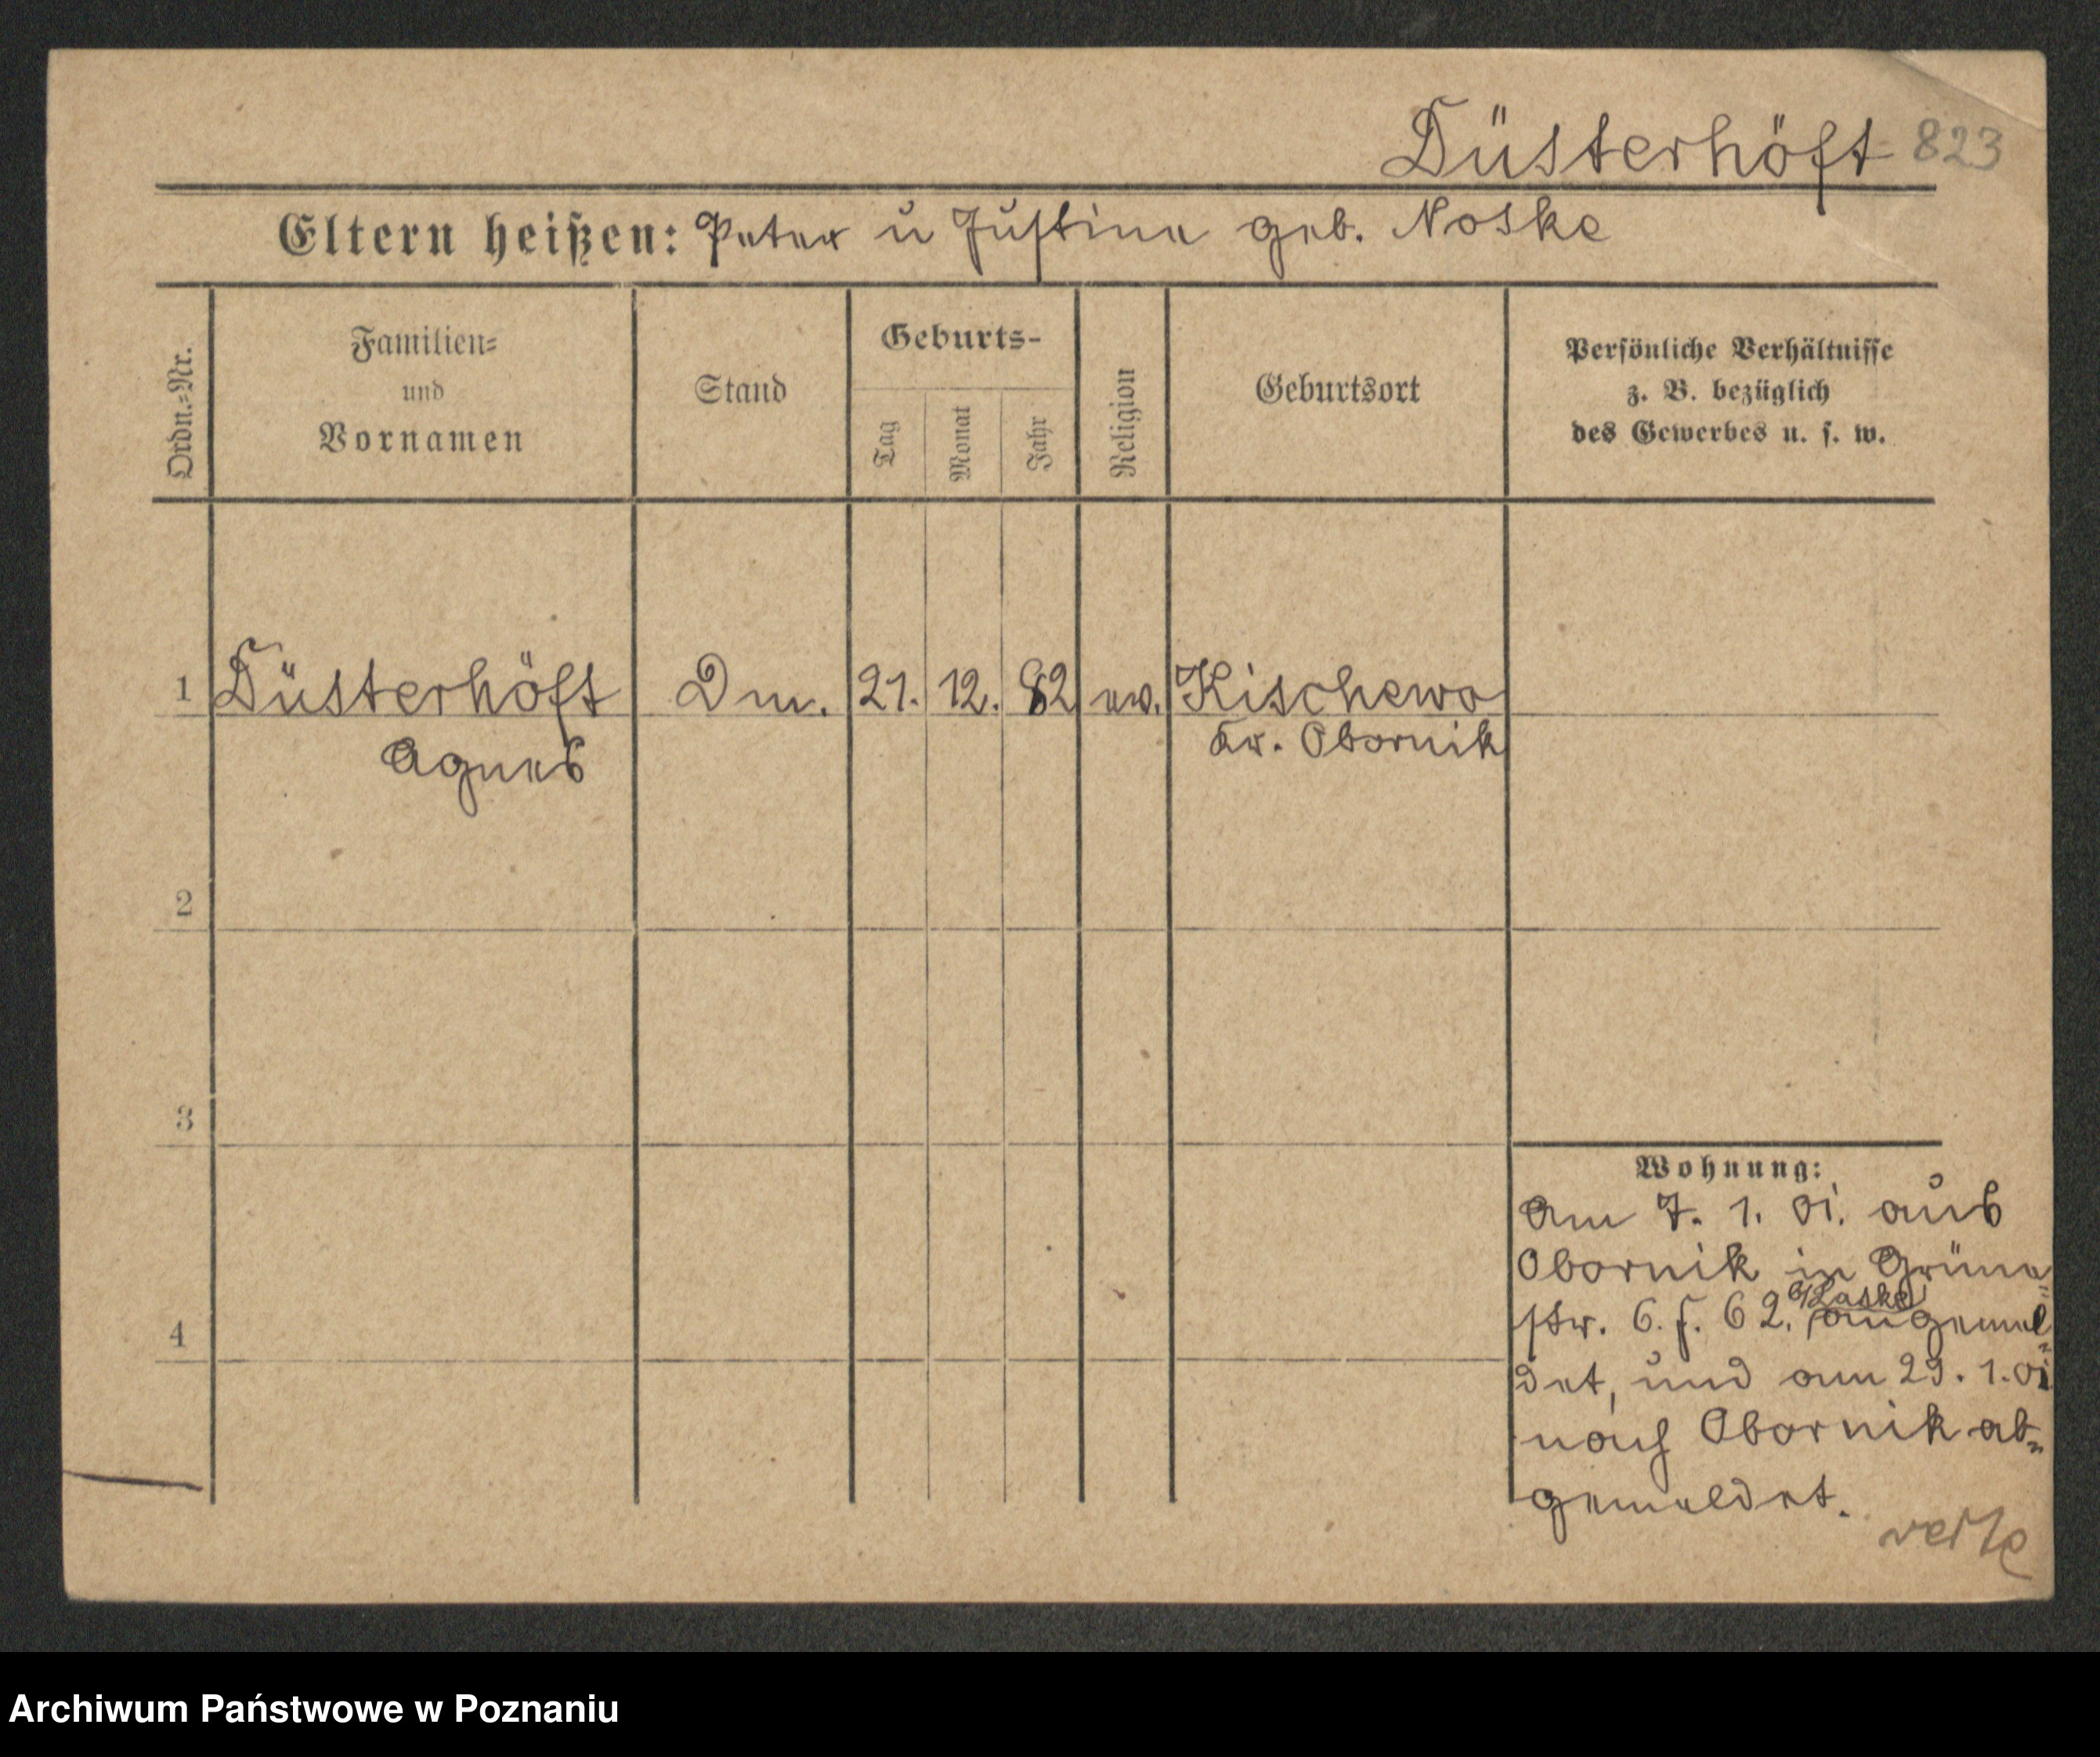 Düsterhöft 823
Eltern heißen: Peter u Justine geb. Noske
Ordn.=Nr.
Familien=
und
Vornamen
Stand
Geburts-
Tag
Monat
Jahr
Religion
Geburtsort
Persönliche Verhältnisse
z. B. bezüglich
des Gewerbes u. s. w.
1 Düsterhöft Dm. 21. 12. 82 ev. Kischewo
Agnes Kr. Obornik
2
3
Wohnung:
Am 7. 1. 01. aus
Obornik in Grüne
b/Laske
str. 6. f. 62. angemel=
4
det, und am 29. 1. 01
nach Obornik ab=
gemeldet.
verte
Archiwum Państwowe w Poznaniu